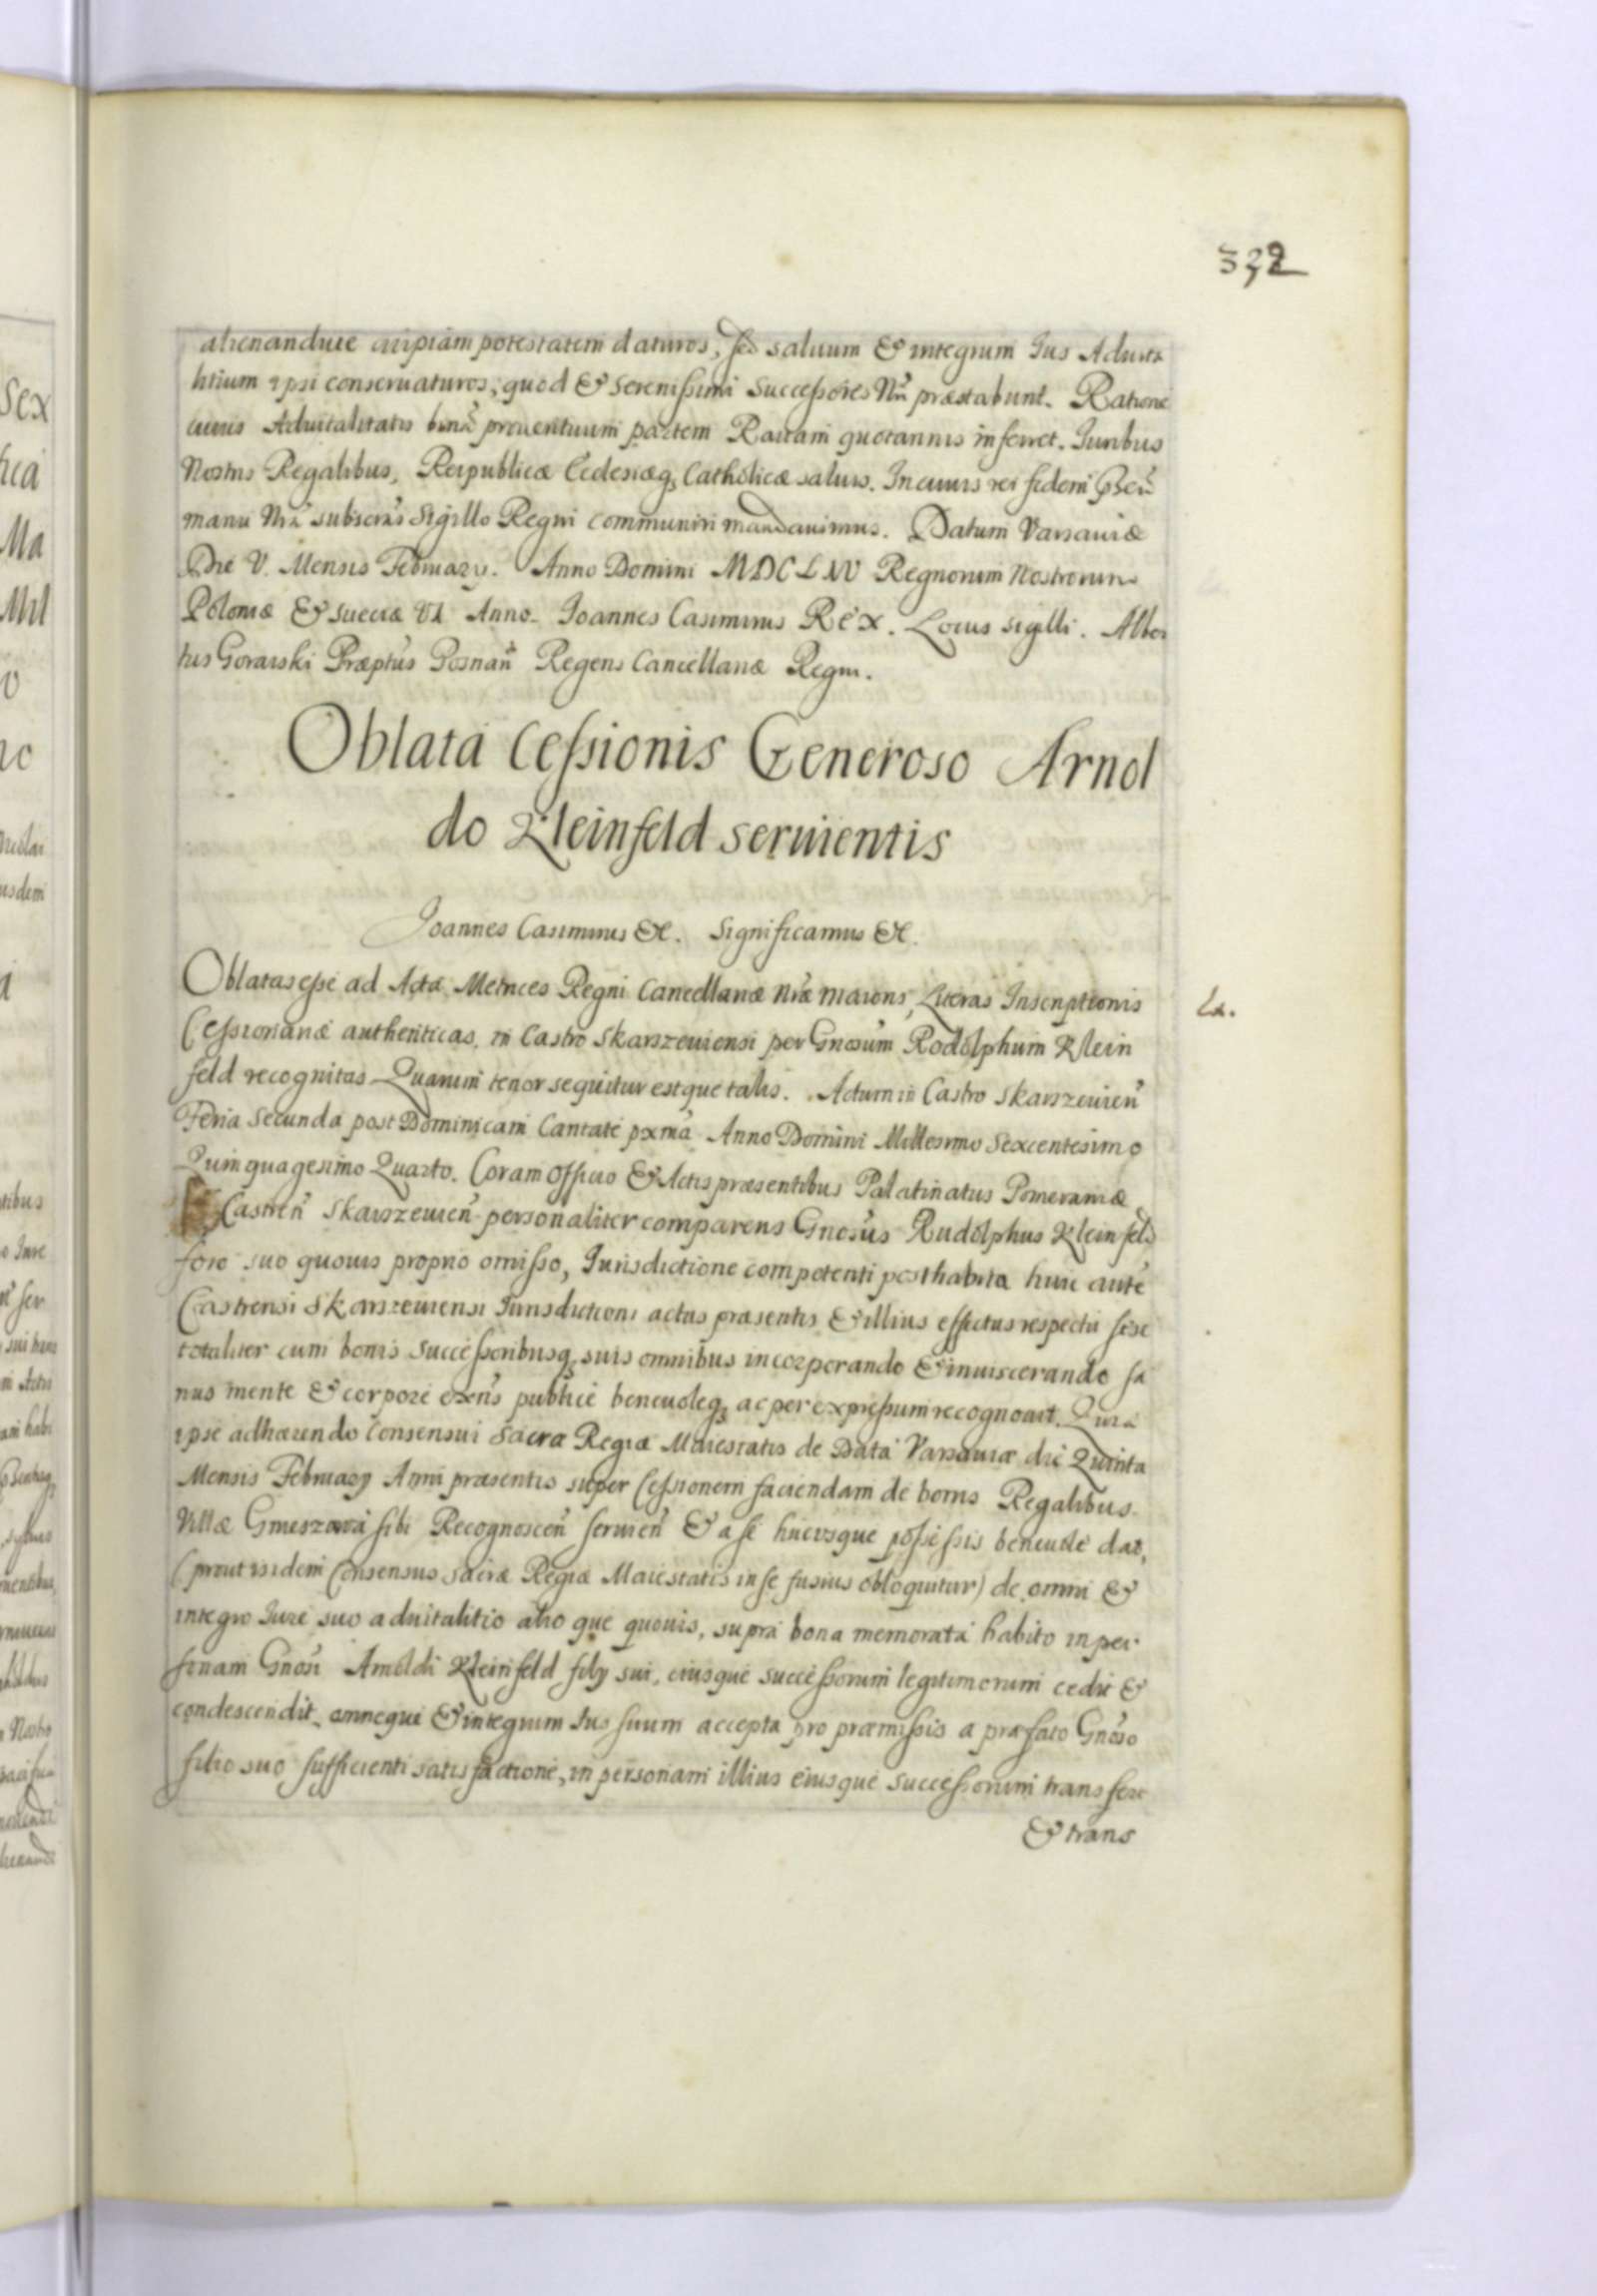 332
alienandue cuipiam potestatem daturos, sed saluum & integrum Jus Aduita
litium ipsi conseruaturos; quod & Serenissimi Successores Nri præstabunt. Ratione
cuius Aduitalitatis binã prouentuum partem Rattam quotannis inferret. Juribus
Nostris Regalibus, Reipublicæ Ecclesiæq; Catholicæ saluis. In cuius rei fidem Psen
manu Nra subscrãs Sigillo Regni communiri mandauimus. Datum Varsauiæ
Die V. Mensis February. Anno Domini MDCLIV Regnorum Nostrorum
Poloniæ & Sueciæ VI Anno. Joannes Casimirus Rex. Locus sigilli. Alber
tus Goraiski Præptus Posnan Regens Cancellariæ Regni.
Oblata Cessionis Generoso Arnol
do Kleinfeld seruientis
Joannes Casimirus &c. Significamus &c.
Oblatas esse ad Acta Metrices Regni Cancellariæ Nræ maioris, Literas Inscriptionis
Cessionariæ authenticas, in Castro Skarszeuiensi per Gnosum Rodolphum Klein
feld recognitas Quarum tenor sequitur estque talis. Actum in Castro Skarszeuien
La.
Feria Secunda post Dominicam Cantate pxma Anno Domini Millesimo Sexcentesimo
Quinquagesimo Quarto. Coram Officio & Actis præsentibus Palatinatus Pomeraniæ
Castren Skarszeuien personaliter comparens Gnosus Rudolphus Kleinfeld
foro suo quouis proprio omisso, Jurisdictione competenti posthabita huic aute
Castrensi Skarszeuiensi Jurisdictioni actus præsentis & illius effectus respectu sese
totaliter cum bonis Successoribusq; suis omnibus incorporando & inuiscerando sa
nus mente & corpore exens publice beneuoleq; ac per expressum recognouit. Quia
ipse adhærendo Consensui Sacræ Regiæ Maiestatis de Data Varsauiæ die Quinta
Mensis February Anni præsentis super Cessionem faciendam de bonis Regalibus
Villæ Gmeszawa sibi Recognoscen seruien & a se hucusque possessis beneuole dat,
(prout isidem Consensus Sacræ Regiæ Maiestatis in se fusius obloquitur) de omni &
integro Jure suo aduitalitio alio que quouis, supra bona memorata habito in per
sonam Gnosi Arnoldi Kleinfeld fily sui, eiusque successorum legitimorum cedit &
condescendit, omneque & integrum Jus suum accepta pro præmissis a præfato Gnoso
filio suo sufficienti satisfactione, in personam illius eiusque successorum transfert
& trans